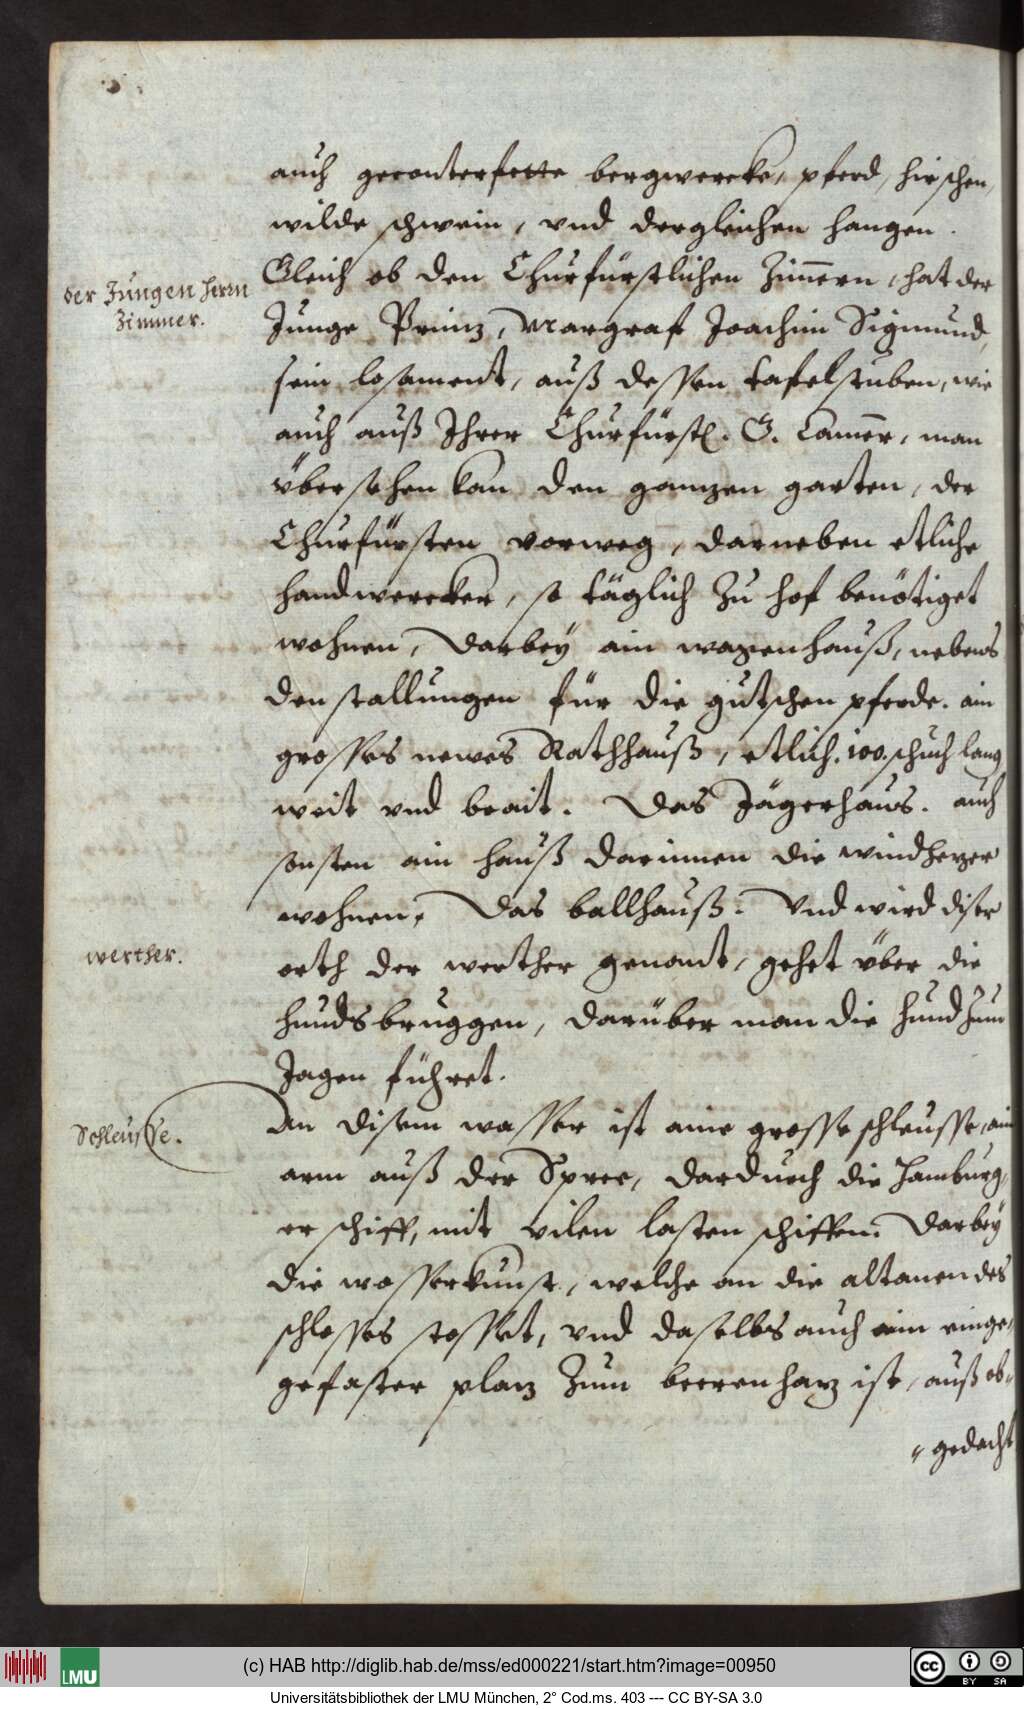 auch geconterfette bergwercke, pferd, hirschen,
wilde schwein, vnd dergleichen hangen.
der Jungen herrn
Zimmer.
Gleich ob den Churfürstlichen Zim̅ern, hat der
Junge Prinz, Margraf Joachim Sigmund,
sein losament, auß dessen tafelstuben, wie
auch auß Ihrer Churfürstl. G. Cam̅er, man
übersehen kan den ganzen garten, der
Churfürsten vorweg, darneben etliche
handwercker, so täglich Zu hof benötiget
wohnen, Darbeÿ ain wagenhauß, nebens
den stallungen für die gutschen pferde. ain
grosses newes Rathhauß, etlich. 100. schuch lang
weit vnd brait. Das Jägerhaus. auch
sonsten ain hauß darinnen die windhezer
wohnen, Das ballhauß. Vnd wird diser
werther.
orth der werther genant, gehet über die
hundsbruggen, darüber man die hund zum
Jagen führet.
Schleusse.
An disem wasser ist aine grosse schleusse, ain
arm auß der Spree, dardurch die Hamburg,
er schiff, mit vilen lasten schiffen. Darbeÿ
die wasserkunst, welche an die altanen des
schlosses stosset, vnd daselbs auch ein einge,
gefaster plaz Zum beerenhaz ist, auß ob„
„gedacht
(c) HAB http://diglib.hab.de/mss/ed000221/start.htm?image=00950
LMU
BY SA
Universitätsbibliothek der LMU München, 2° Cod.ms. 403 --- CC BY-SA 3.0